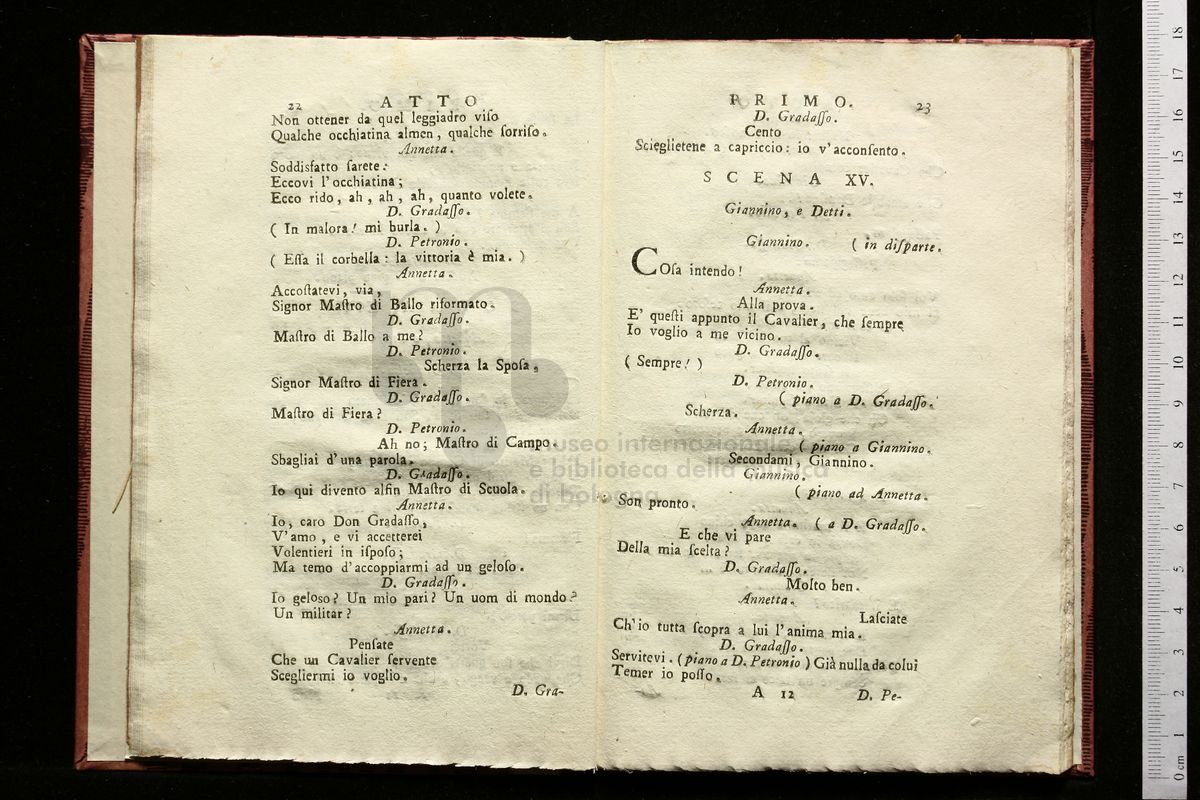 22 ATTO
Non ottener da quel leggiadro viſo
Qualche occhiatina almen, qualche ſorriſo.
Annetta.
Soddisfatto ſarete:
Eccovi l'occhiatina;
Ecco rido, ah, ah, ah, quanto volete.
D. Gradaſſo.
( In malora! mi burla. )
D. Petronio.
( Eſſa il corbella: la vittoria è mia. )
Annetta.
Accoſtatevi, via,
Signor Maſtro di Ballo riformato.
D. Gradaſſo.
Maſtro di Ballo a me?
D. Petronio.
Scherza la Spoſa,
Signor Maſtro di Fiera.
D. Gradaſſo.
Maſtro di Fiera?
D. Petronio.
Ah no; Maſtro di Campo.
Sbagliai d'una parola.
D. Gradaſſo.
Io qui divento alfin Maſtro di Scuola.
Annetta.
Io, caro Don Gradaſſo,
V'amo, e vi accetterei
Volentieri in iſpoſo;
Ma temo d'accoppiarmi ad un geloſo.
D. Gradaſſo.
Io geloſo? Un mio pari? Un uom di mondo?
Un militar?
Annetta.
Penſate
Che un Cavalier ſervente
Scegliermi io voglio.
D. Gra-
PRIMO. 23
D. Gradaſſo.
Cento
Scieglietene a capriccio: io v'acconſento.
SCENA XV.
Giannino, e Detti.
Giannino. ( in diſparte.
COſa intendo!
Annetta.
Alla prova.
E' queſti appunto il Cavalier, che ſempre
Io voglio a me vicino.
D. Gradaſſo.
( Sempre! )
D. Petronio.
( piano a D. Gradaſſo.
Scherza.
Annetta.
( piano a Giannino.
Secondami, Giannino.
Giannino.
( piano ad Annetta.
Son pronto.
Annetta. ( a D. Gradaſſo.
E che vi pare
Della mia ſcelta?
D. Gradaſſo.
Molto ben.
Annetta.
Laſciate
Ch'io tutta ſcopra a lui l'anima mia.
D. Gradaſſo.
Servitevi. (piano a D. Petronio) Già nulla da colui
Temer io poſſo.
A 12 D. Pe-
museo internazionale
e biblioteca della musica
di bologna
0 cm 1 2 3 4 5 6 7 8 9 10 11 12 13 14 15 16 17 18